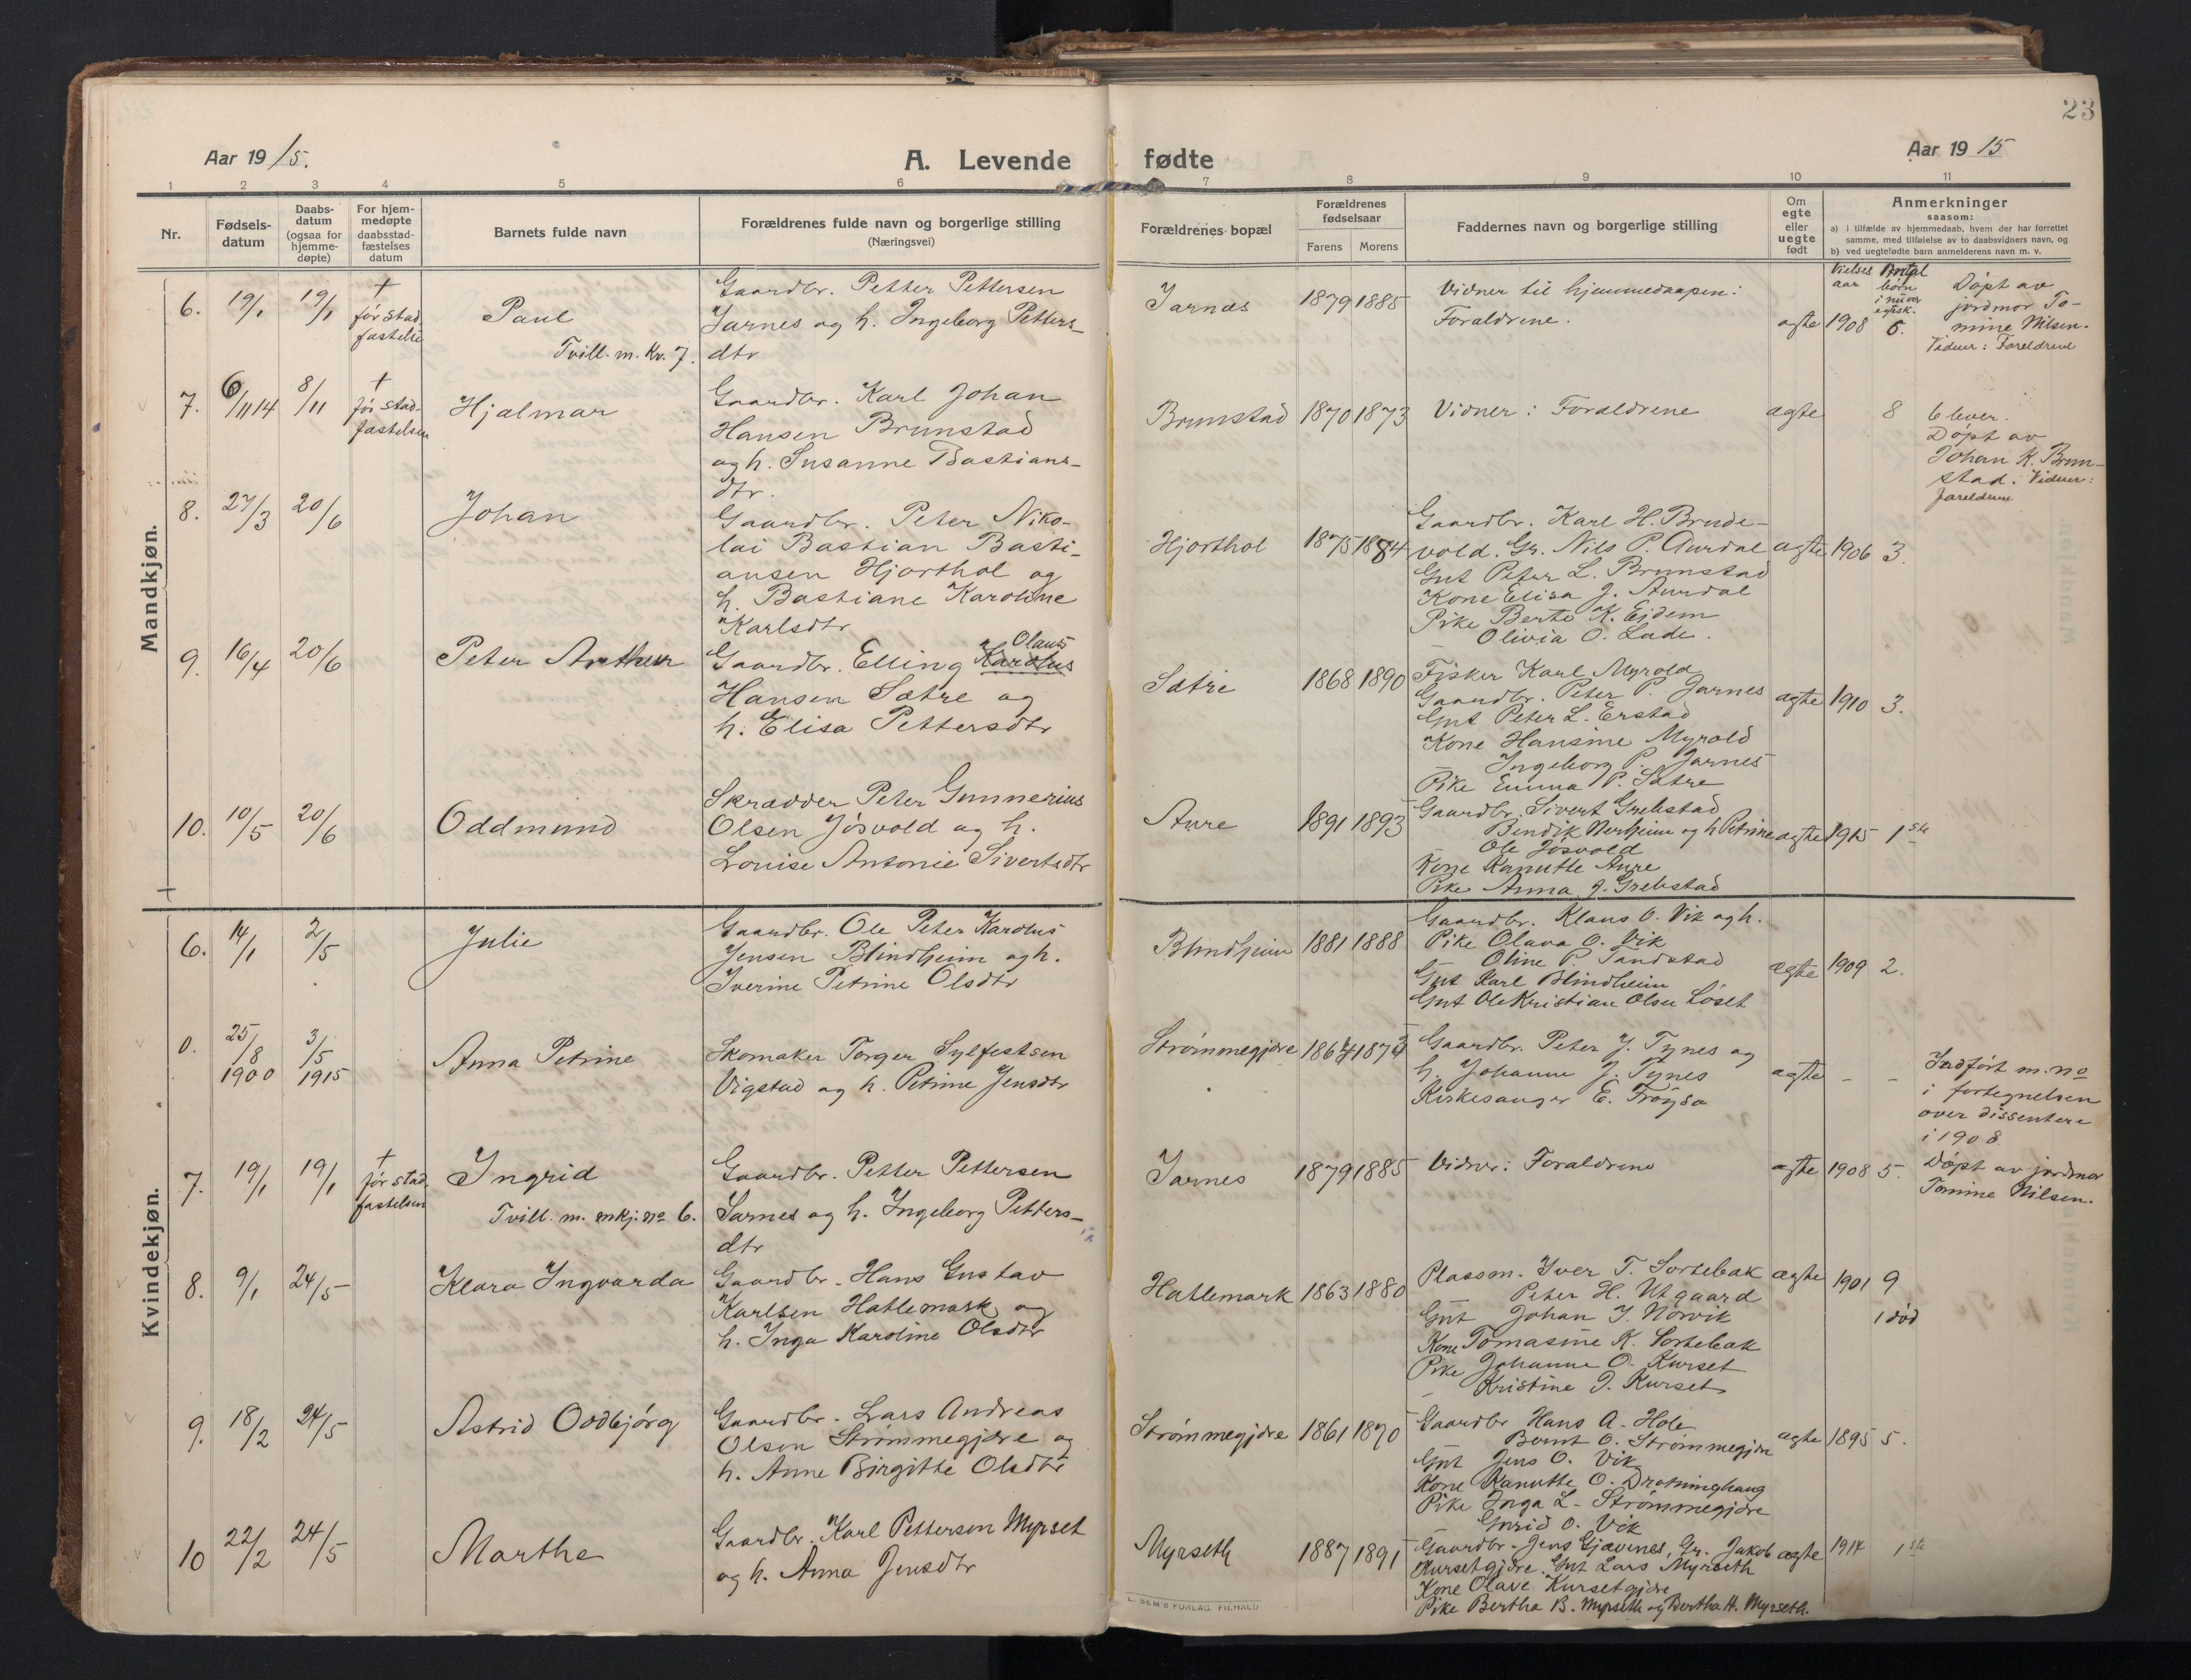 23
Aar 19 15.
A. Levende fødte
Aar 19 15
1 2 3 4 5 6 7 8 9 10 11
Nr.
Fødsels-
datum
Daabs-
datum
(ogsaa for
hjemme-
døpte)
For hjem-
medøpte
daabsstad-
fæstelses
datum
Barnets fulde navn
Forældrenes fulde navn og borgerlige stilling
(Næringsvei)
Forældrenes bopæl
Forældrenes
fødselsaar
Farens Morens
Faddernes navn og borgerlige stilling
Om
egte
eller
uegte
født
Anmerkninger
saasom:
a) i tilfælde av hjemmedaab, hvem der har forrettet
samme, med tilføielse av to daabsvidners navn, og
b) ved uegtefødte barn anmelderens navn m. v.
Mandkjøn.
Vielses
aar
Antal
børn
i nuvær
egtesk.
6. 19/1 19/1
†
før stad
fæstelse
Paul
Tvill. m. Kv. 7.
Gaardbr. Petter Pettersen
Jarnes og h. Ingeborg Petters-
dtr
Jarnæs 1879 1885
Vidner til hjemmedaapen:
Forældrene.
ægte 1908 5.
Døpt av
jordmor To-
mine Nilsen.
Vidner: Foreldrene
7. 6/11 14 8/11
†
før stad-
fæstelsen
Hjalmar
Gaardbr. Karl Johan
Hansen Brunstad
og h. Susanne Bastians-
dtr.
Brunstad 1870 1873
Vidner: Forældrene
ægte 8
6 lever.
Døpt av
Johan K. Brun-
stad. Vidner:
Foreldrene
8. 27/3 20/6
Johan
Gaardbr. Peter Niko-
lai Bastian Basti-
ansen Hjorthol og
h. Bastiane Karoline
Karlsdtr
Hjorthol 1875 1884
Gaardbr. Karl H. Brude-
vold. Gr. Nils P. Aurdal
Gut Peter L. Brunstad
Kone Elisa J. Aurdal
Pike Berte K. Eidem
Olivia O. Lade.
ægte 1906 3.
9. 16/4 20/6
Peter Arthur
Olaus
Gaardbr. Elling Karolus
Hansen Sætre og
h. Elisa Pettersdtr
Sætre 1868 1890
Fisker Karl Myrold
Gaardbr. Peter P. Jarnes
Gut Peter L. Erstad
Kone Hansine Myrold
Ingeborg P. Jarnes
Pike Emma P. Sætre
ægte 1910 3.
10. 10/5 20/6
Oddmund
Skrædder Peter Gunnerius
Olsen Jøsvold og h.
Louise Antonie Sivertsdtr
Aure 1891 1893
Gaardbr. Sivert Grebstad
Bendik Nerheim og h Petrine
Ole Jøsvold
Kone Kanutte Aure
Pike Anna J. Grebstad
ægte 1915 1ste
Kvindekjøn.
6. 14/1 2/5
Julie
Gaardbr. Ole Peter Karolus
Jensen Blindheim og h.
Iverine Petrine Olsdtr
Blindheim 1881 1888
Gaardbr. Klaus O. Vik og h.
Pike Olava O. Vik
Oline P. Tandstad
Gut Karl Blindheim
Gut Ole Kristian Olsen Løset
ægte 1909 2.
0. 25/8 1900 3/5 1915
Anna Petrine
Skomaker Torger Sylfestsen
Vigstad og h. Petrine Jensdtr
Strømmegjære
Gaardbr. Peter J. Tynes og
h. Johanne J. Tynes
Kirkesanger E. Frøysa
ægte - -
Indført m. no
i fortegnelsen
over dissentere
i 1908
7. 19/1 19/1
†
før stad.
fæstelsen
Ingrid
Tvill. m. mkj. no 6.
Gaardbr. Petter Pettersen
Jarnes og h. Ingeborg Petters-
dtr
Jarnes 1879 1885
Vidner: Forældrene
ægte 1908 5.
Døpt av jordmor
Tomine Nilsen.
8. 9/1 24/5
Klara Ingvarda
Gaardbr. Hans Gustav
Karlsen Hatlemark og
h. Inga Karoline Olsdtr
Hatlemark 1863 1880
Plassm. Iver T. Sortebak
Peter H. Utgaard
Gut Johan J. Norvik
Kone Tomasine K. Sortebak
Pike Johanne O. Kurset
Kristine J. Kurset
ægte 1901 9
1 død
9. 18/2 24/5
Astrid Oddbjørg
Gaardbr. Lars Andreas
Olsen Strømmegjære og
h. Anne Birgitte Olsdtr
Strømmegjære 1861 1870
Gaardbr Hans A. Hole
Bernt O. Strømmegjære
Gut Jens O. Vik
Kone Kanutte O. Drotninghaug
Pike Inga L. Strømmegjære
Gurid O. Vik
ægte 1895 5.
10 22/2 24/5
Marthe
Gaardbr. Karl Pettersen Myrset
og h. Anna Jensdtr
Myrseth 1887 1891
Gaardbr. Jens Gjævenes, Gr. Jakob
Kursetgjære. Gut Lars Myrseth
Kone Olave Kursetgjære
Pike Bertha B. Myrseth og Bertha H. Myrseth.
ægte 1914 1ste
E. SEM'S FORLAG, FR.HALD